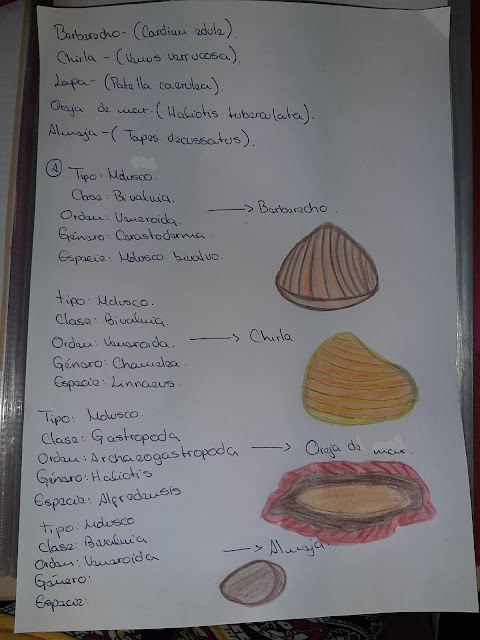 Barbarecho- (Cardium edule).
Chirla - (Venus verrucosa).
Lapa- (Patella caerulea).
Oreja de mar. (Haliotis tuberculata).
Almeja -( Tapes decussatus).
① Tipo: Molusco.
Clase: Bivalvia.
Orden: Veneroida. → Barbarecho.
Género: Carastoderma.
Especie: Molusco bivalvo.
Tipo: Molusco.
Clase: Bivalvia.
Orden: Veneroida. → Chirla
Género: Chamelea.
Especie: Linnaeus.
Tipo: Molusco.
Clase: Gastropoda
Orden: Archaeogastropoda → Oreja de mar.
Género: Haliotis
Especie: Alfredensis
Tipo: Molusco
Clase: Bivalvia
Orden: Veneroida → Almeja
Género:
Especie: